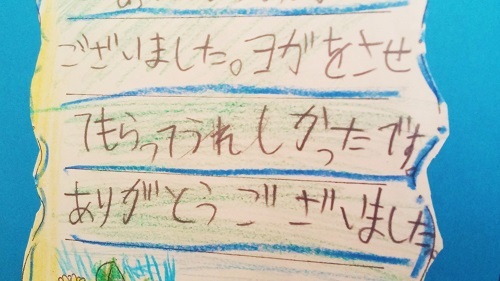 ございました。ヨガをさせ
てもらってうれしかったです。
ありがとうございました。